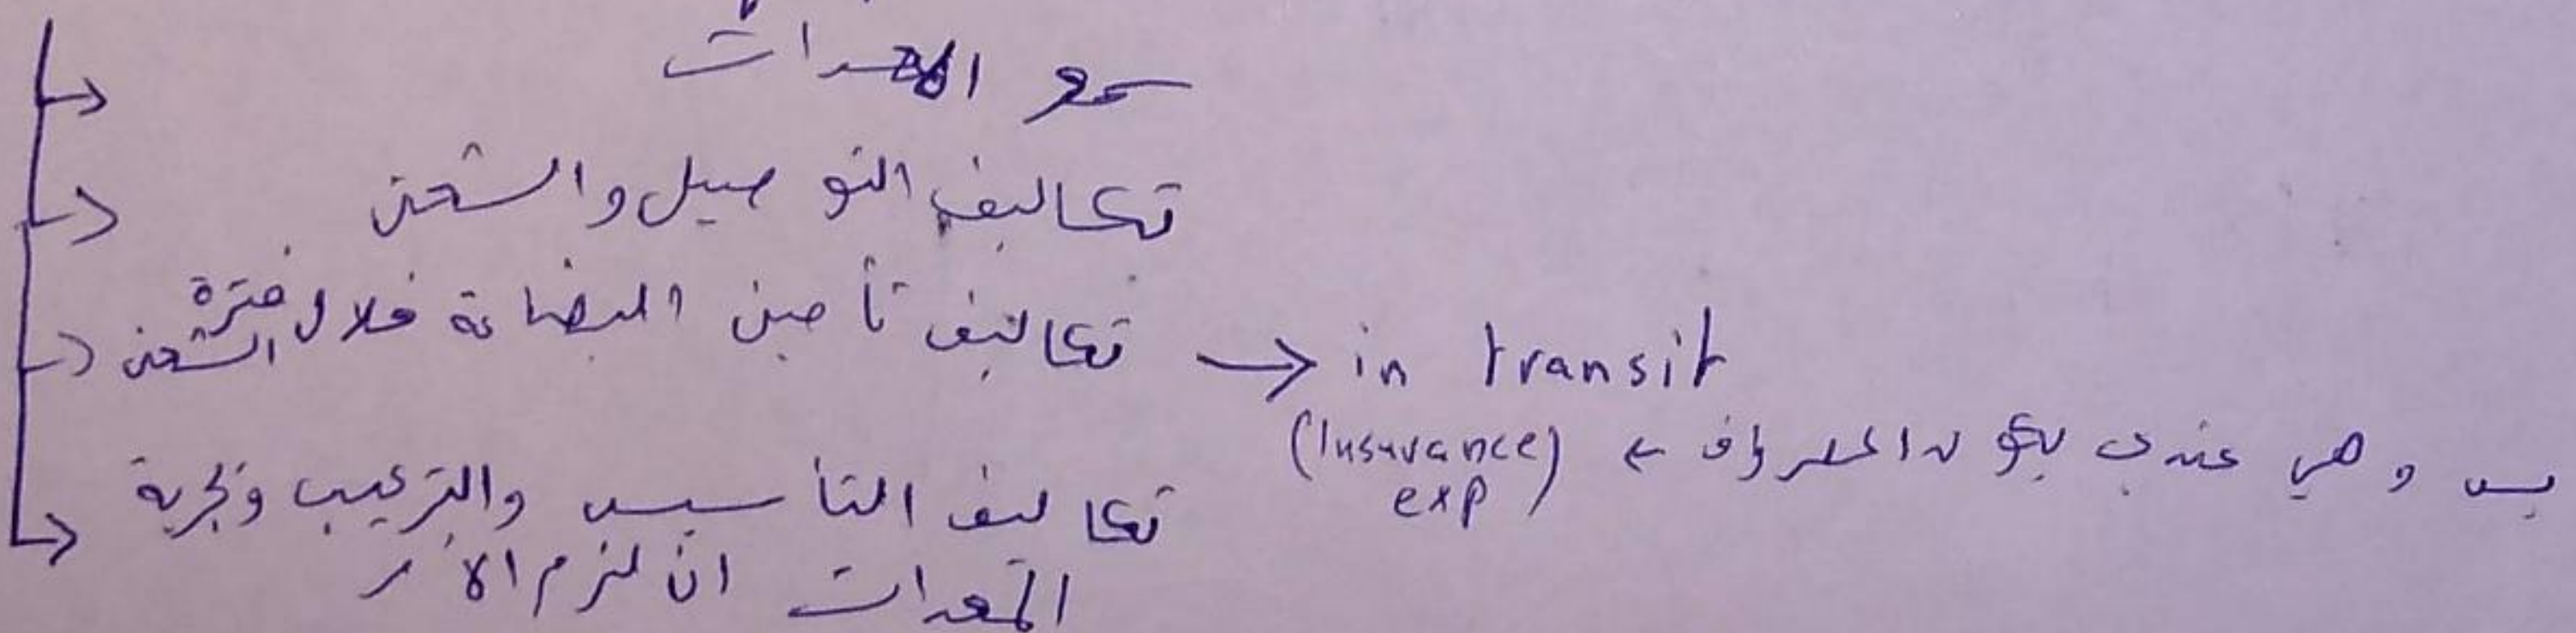 سعر المعدات
تكاليف التوصيل والشحن
تكاليف تأمين البضاعة خلال فترة الشحن → in transit
بس وهي عندي بكون (Insurance exp) ←
تكاليف التأسيس والتركيب وتجربة
المعدات ان لزم الأمر